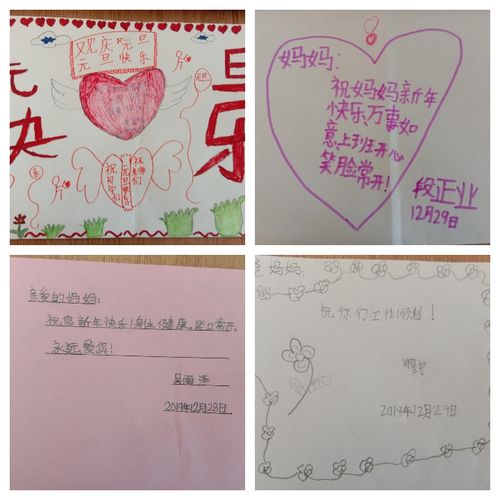 欢庆元旦
元旦快乐
元
旦
快
乐
元旦
乐
祝老师们
元旦快乐
祝同学们
妈妈:
祝妈妈新年
快乐、万事如
意,上班开心
笑脸常开!
段正业
12月29日
亲爱的妈妈:
祝您新年快乐!身体健康。笑口常开。
永远爱您!
吴雨泽
2019年12月28日
妈妈:
祝你们工作顺利!
2019年12月29日